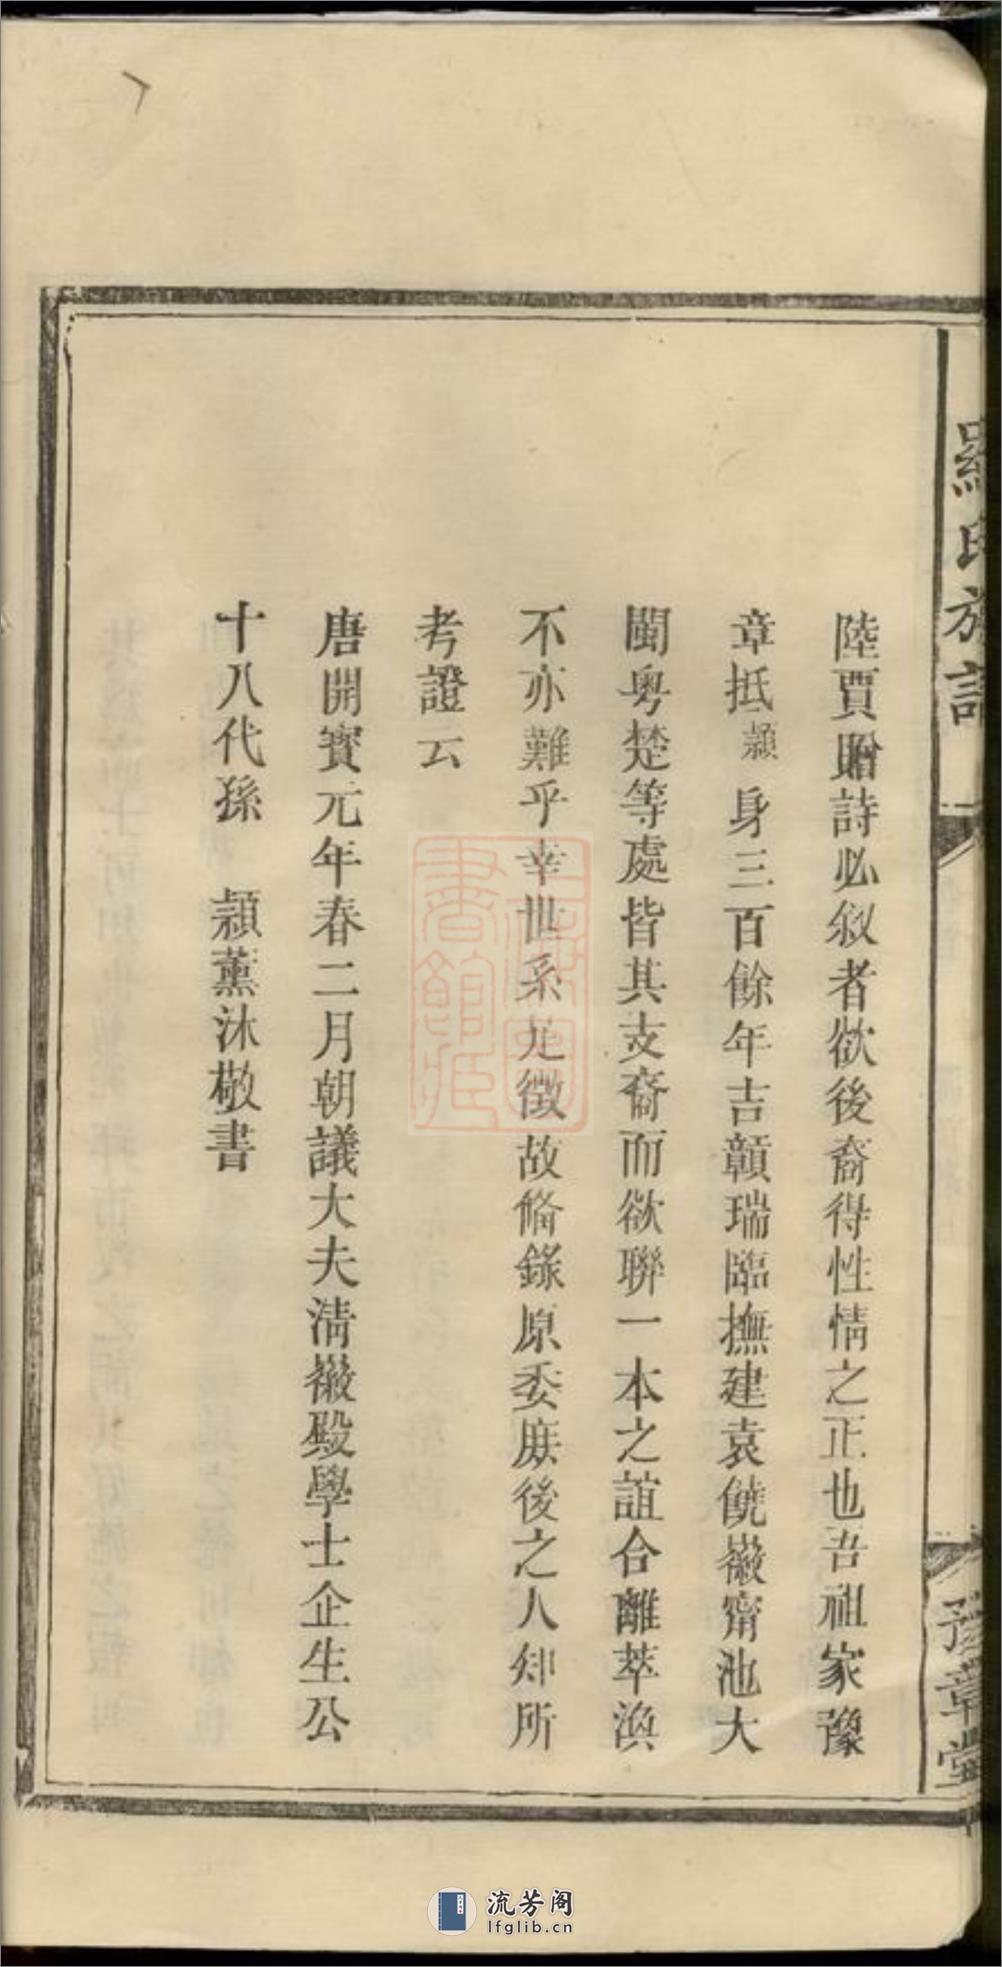 陸賈贈詩必敘者欲後裔得性情之正也吾祖家豫
章抵顯身三百餘年吉贛瑞臨撫建袁饒徽寧池大
閩粵楚等處皆其支裔而欲聯一本之誼合離萃渙
不亦難乎幸世系足徵故俻錄原委庶後之人知所
考證云
唐開寳元年春二月朝議大夫清徽殿學士企生公
十八代孫 頴薰沐敬書
羅氏族譜
豫章堂
流芳阁
lfglib.cn